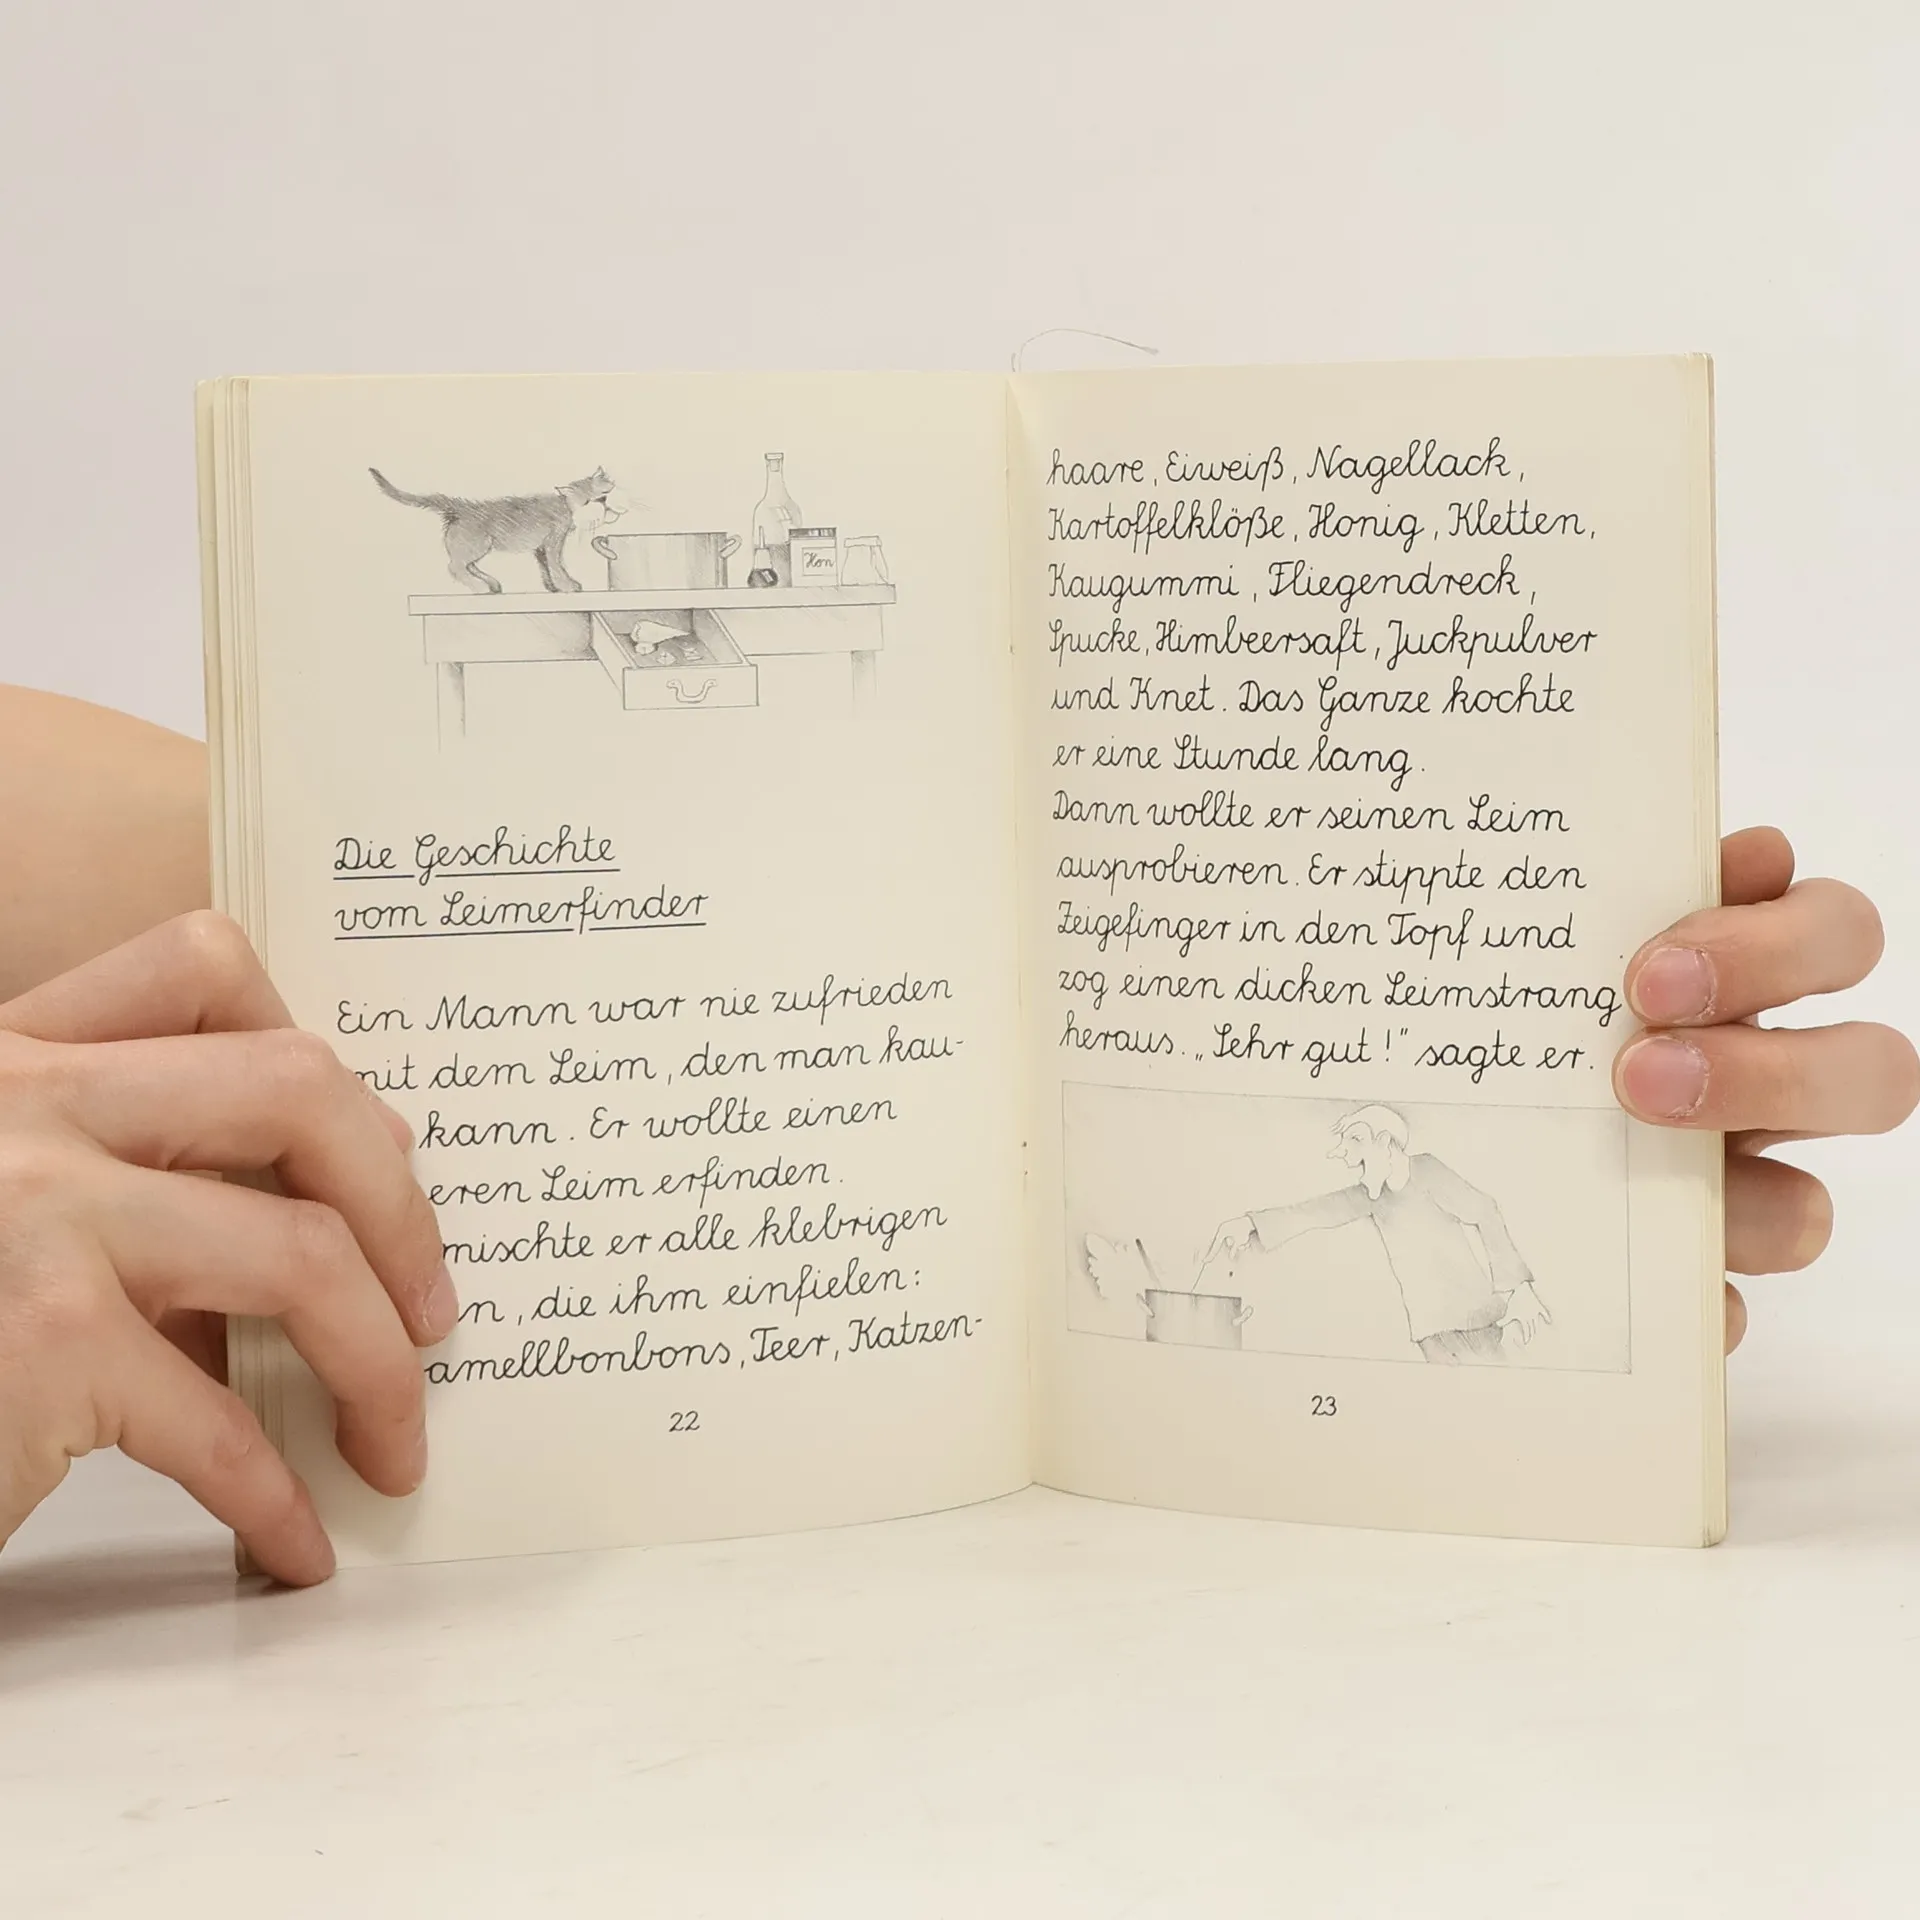 Hon
Die Geschichte
vom Leimerfinder
Ein Mann war nie zufrieden
mit dem Leim, den man kau-
kann. Er wollte einen
erfinden.
Leim erfinden.
mischte er alle klebrigen
, die ihm einfielen:
, Teer, Katzen-
22
haare, Eiweiß, Nagellack,
Kartoffelklöße, Honig, Kletten,
Kaugummi, Fliegendreck,
Spucke, Himbeersaft, Juckpulver
und Knet. Das Ganze kochte
er eine Stunde lang.
Dann wollte er seinen Leim
ausprobieren. Er stippte den
Zeigefinger in den Topf und
zog einen dicken Leimstrang
heraus. „Sehr gut!" sagte er.
23